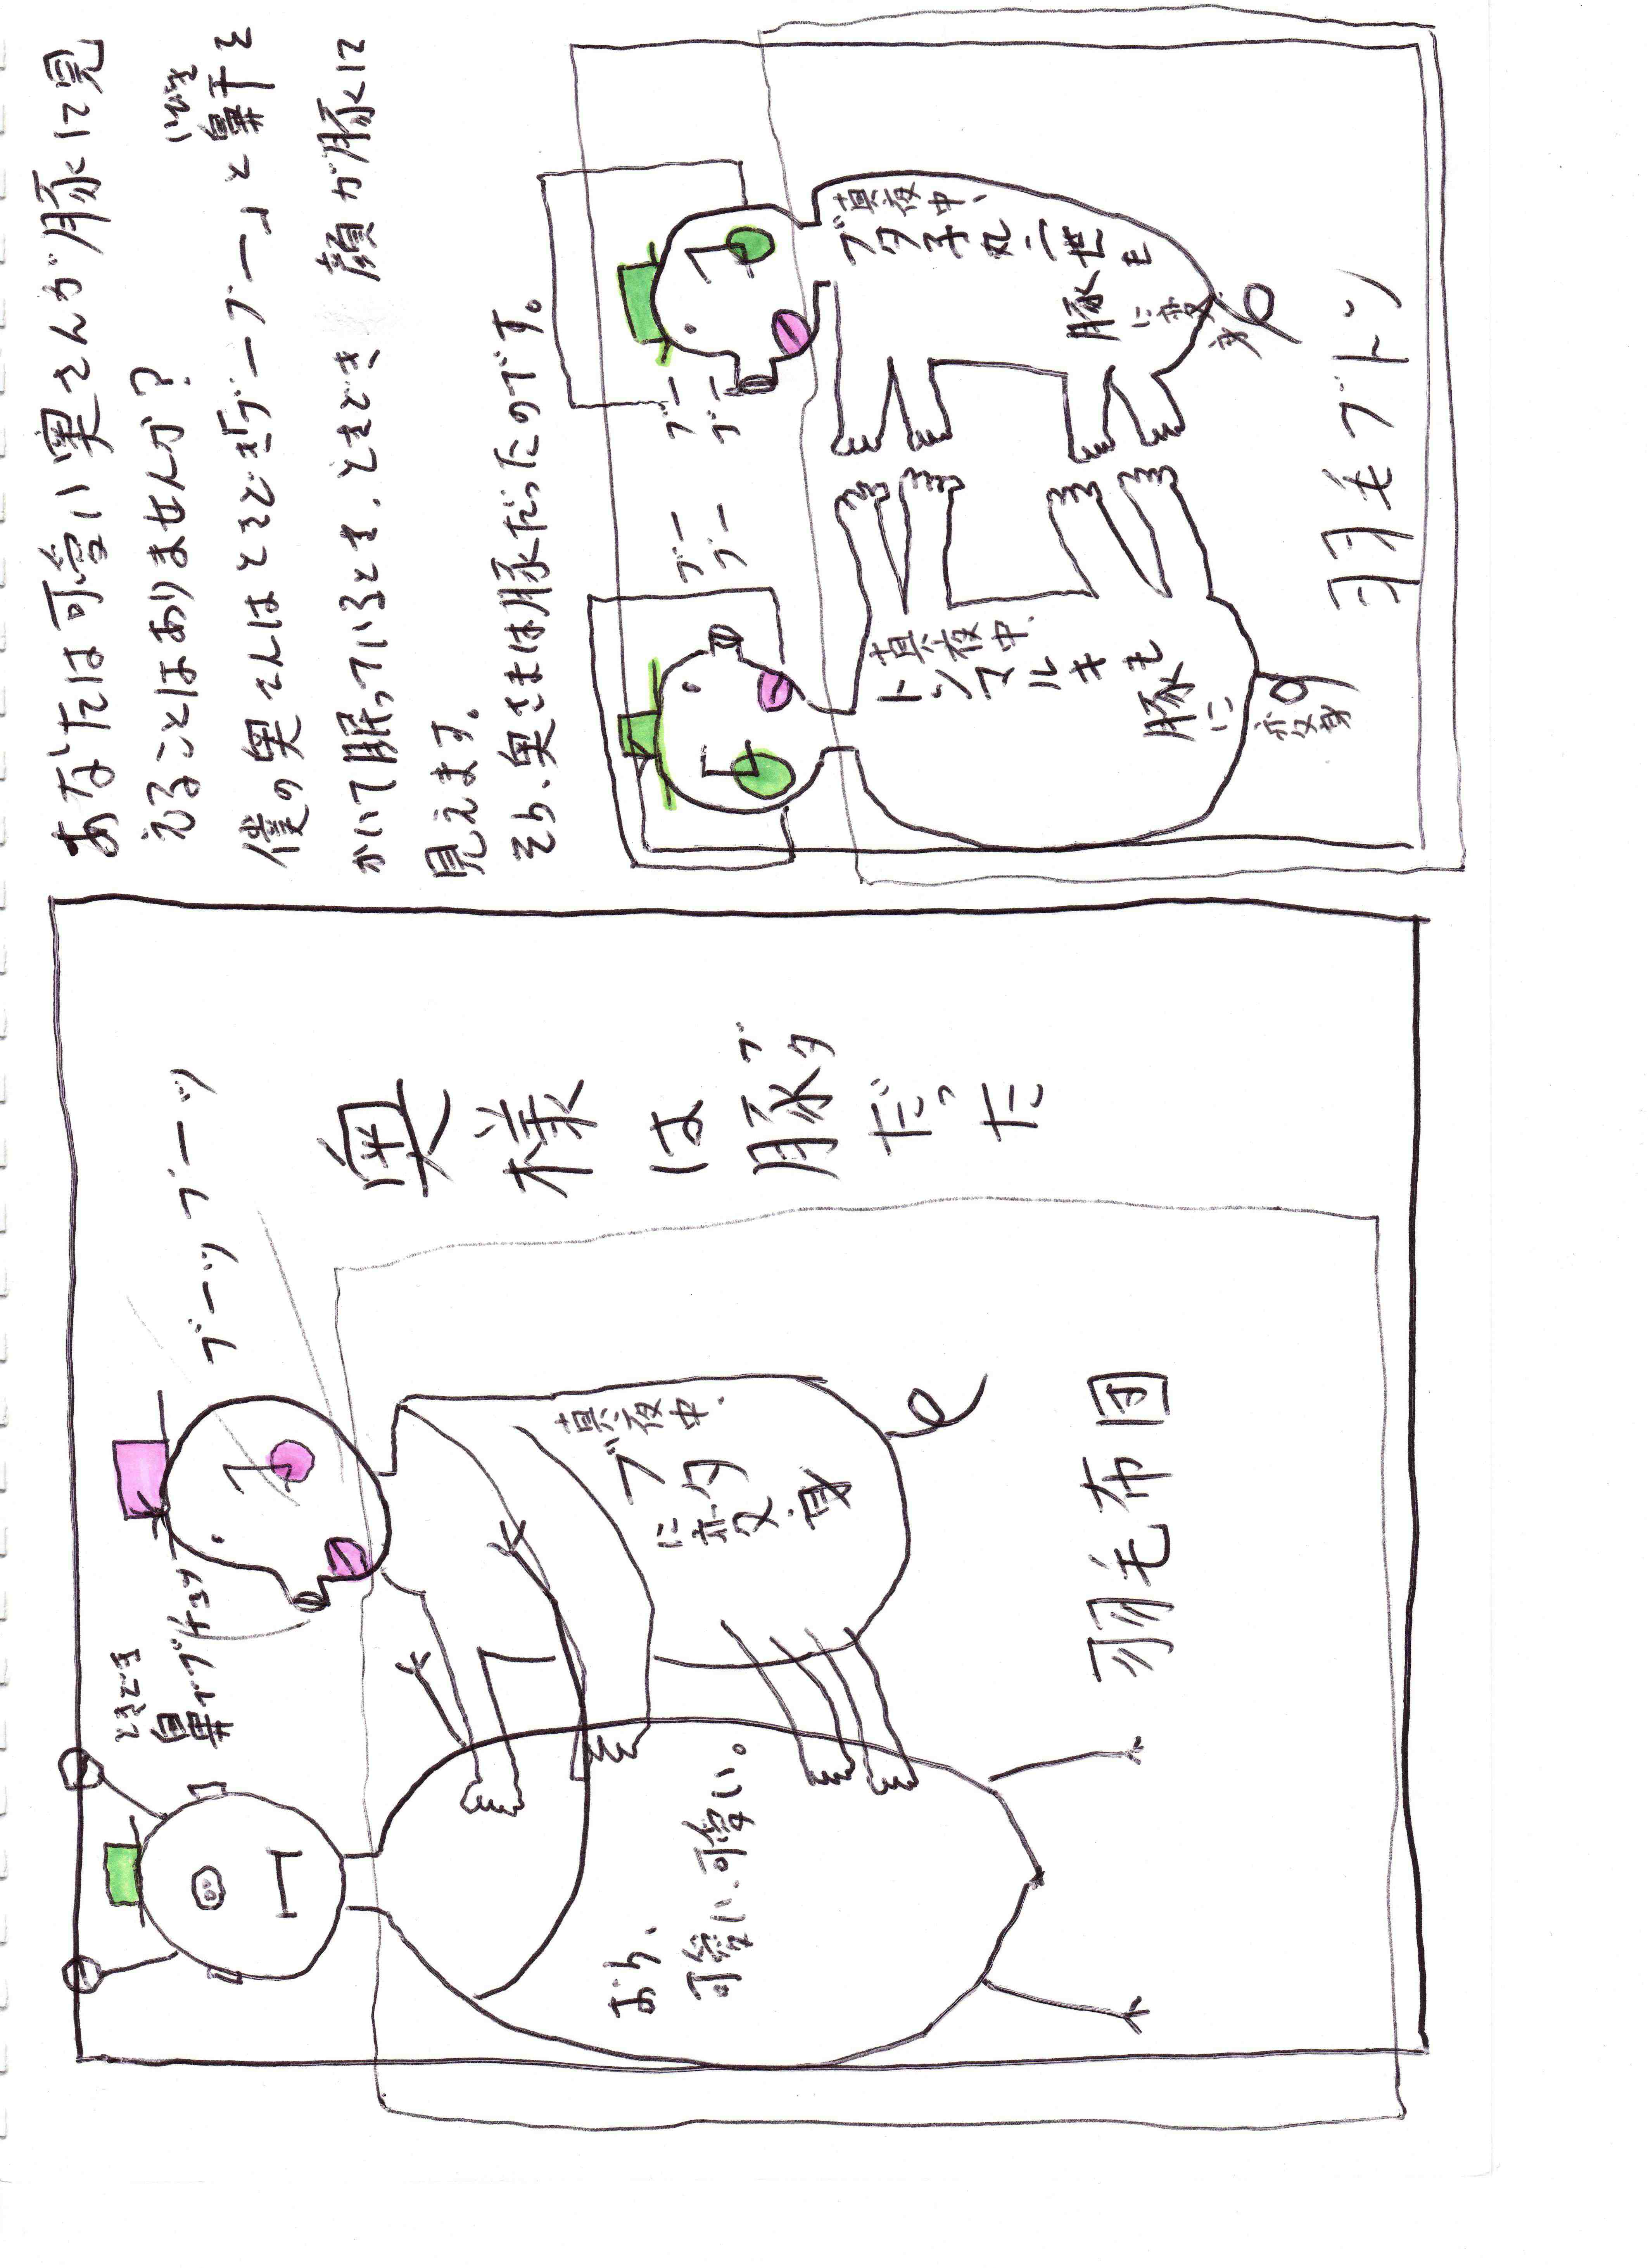 ときどき
鼻でブチュッ
ブーッブーッ
奥様は豚だった
ブタ
おう、
可愛い、可愛い。
真夜中、
ブタ
に変身
羽毛布団
あなたは可愛い奥さんが豚に見
えることはありませんか？
いびき
僕の奥さんはときどき「ブーブー」と鼾を
かいて眠っているとき、ときどき顔が豚に
見えます。
そう、奥さまは豚だったのです。
ブー
ブー
ブー
ブー
真夜中、
トンマルキモ
豚に
変身
真夜中、
ブタ子丸二世も
豚
に変
身
羽毛ブトン